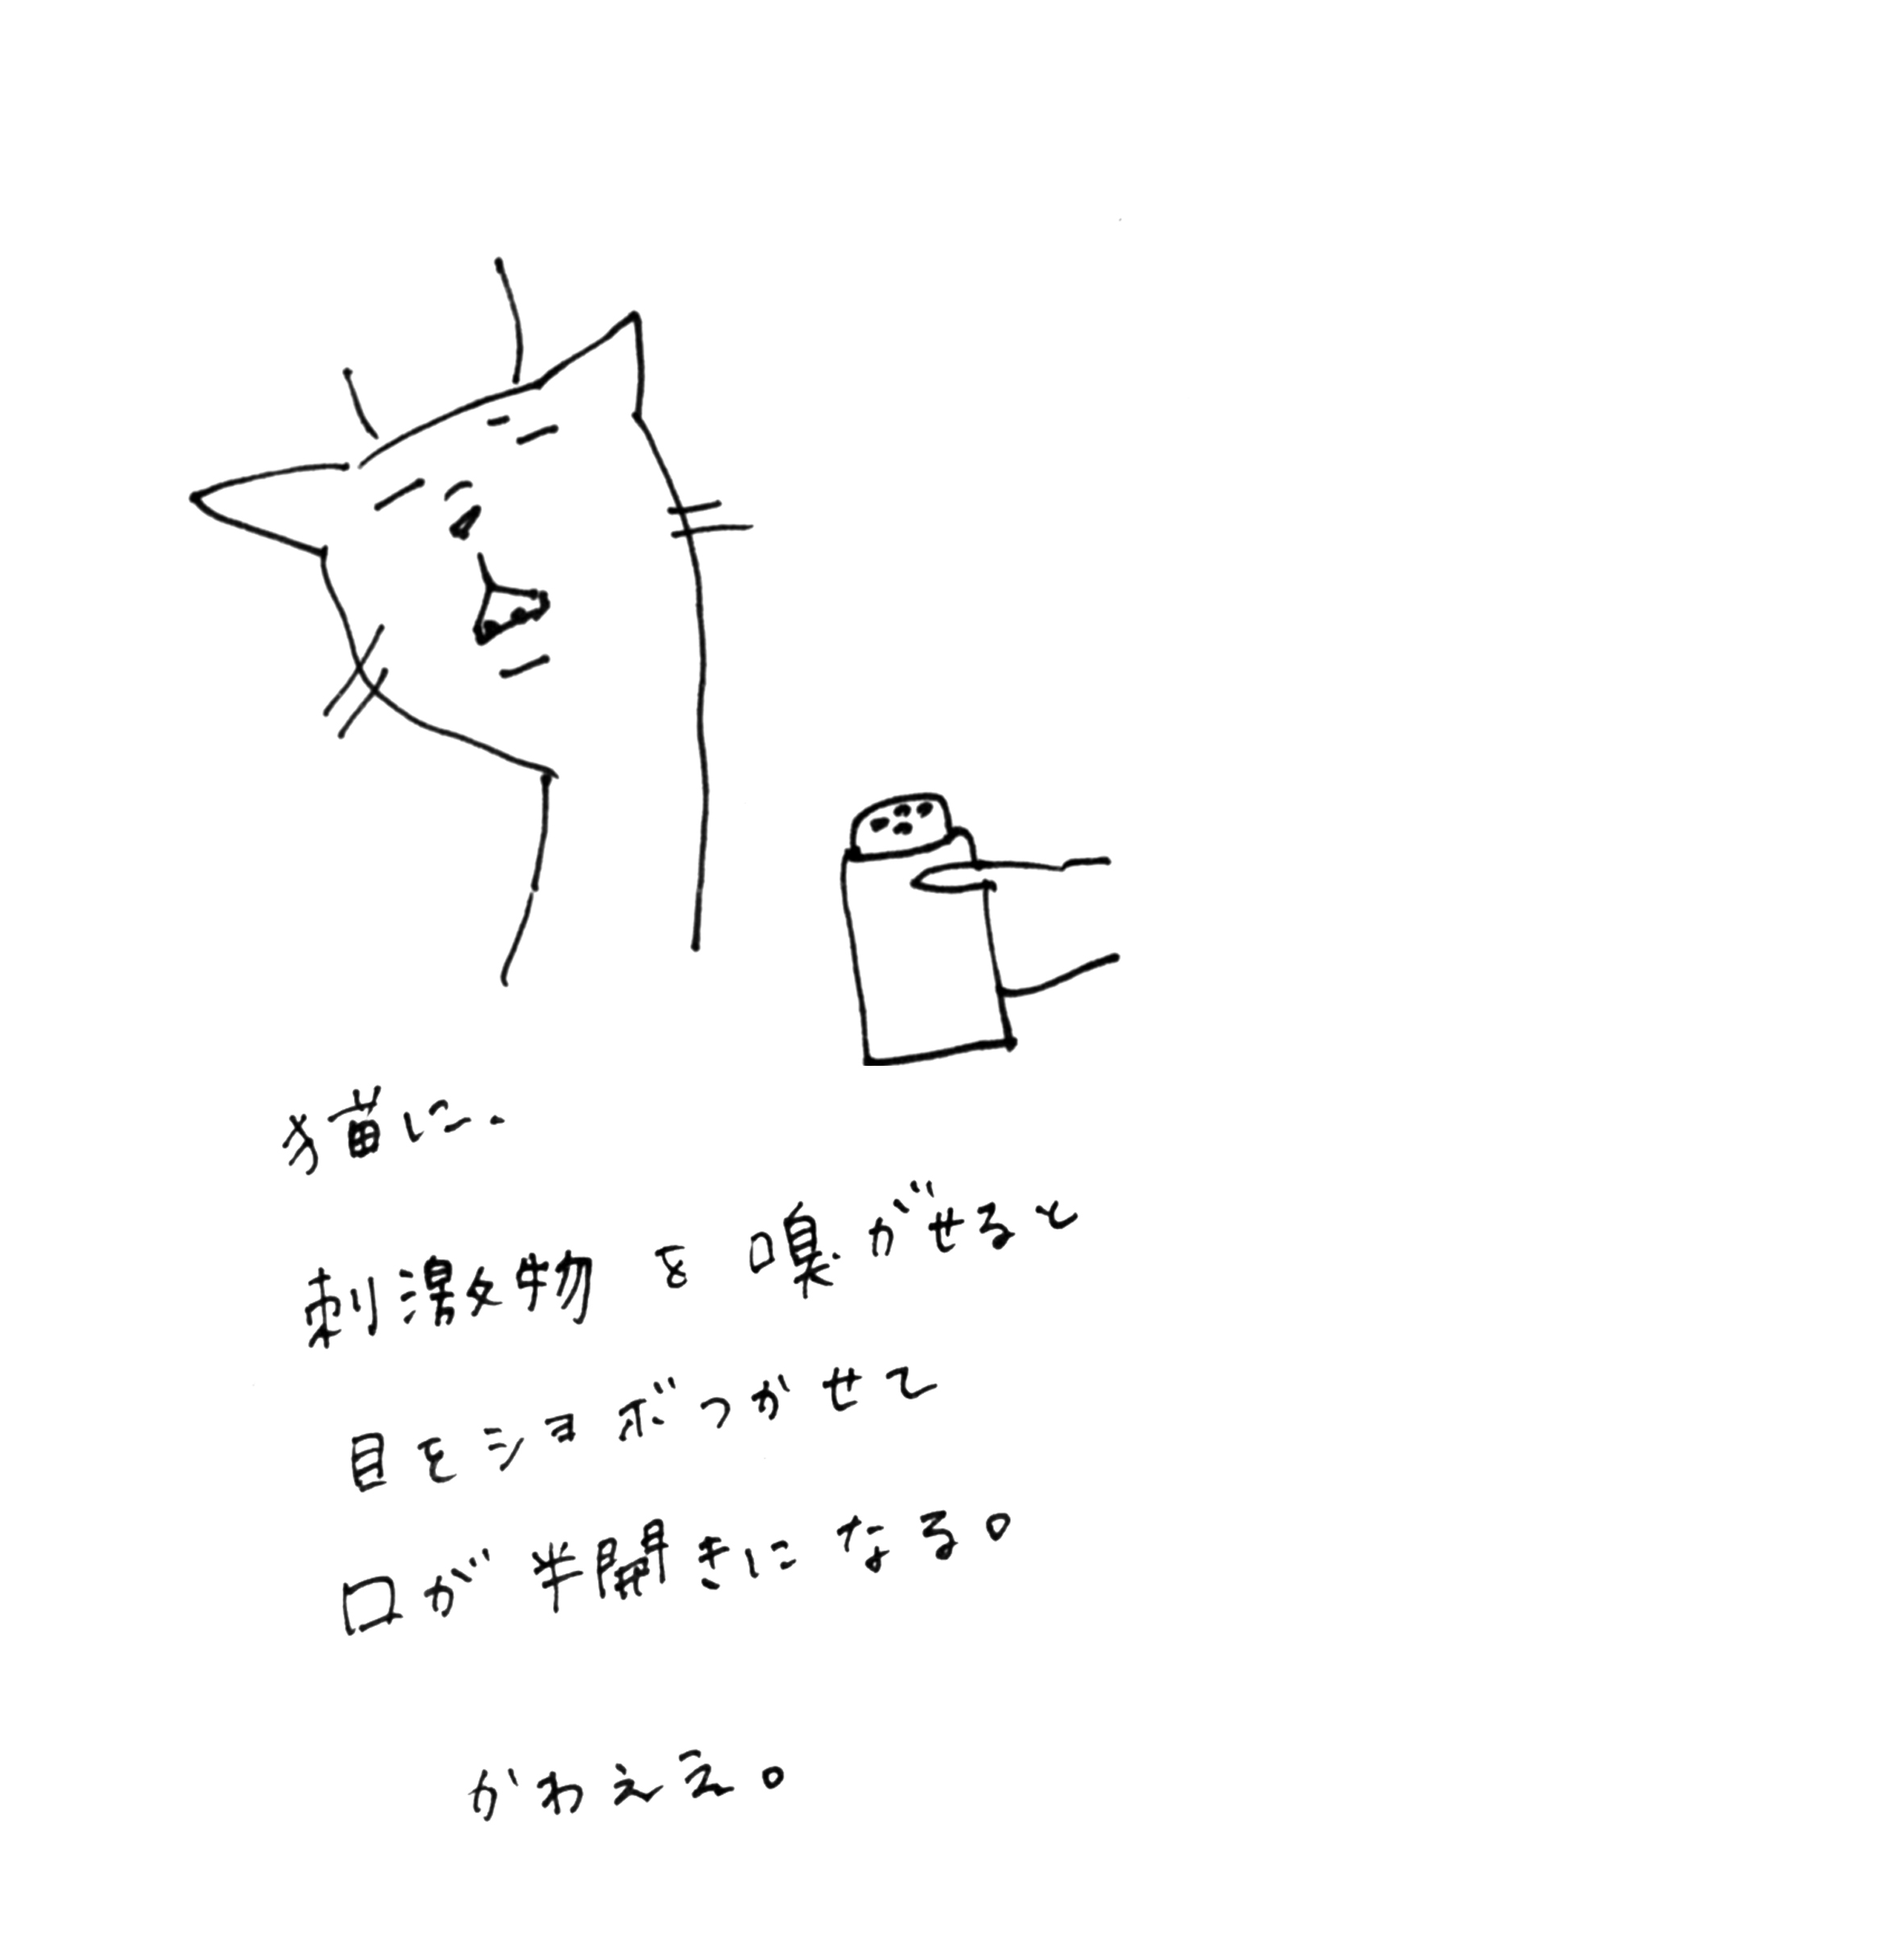 猫に、
刺激物を嗅がせると
目をショボつかせて
口が半開きになる。
かわええ。